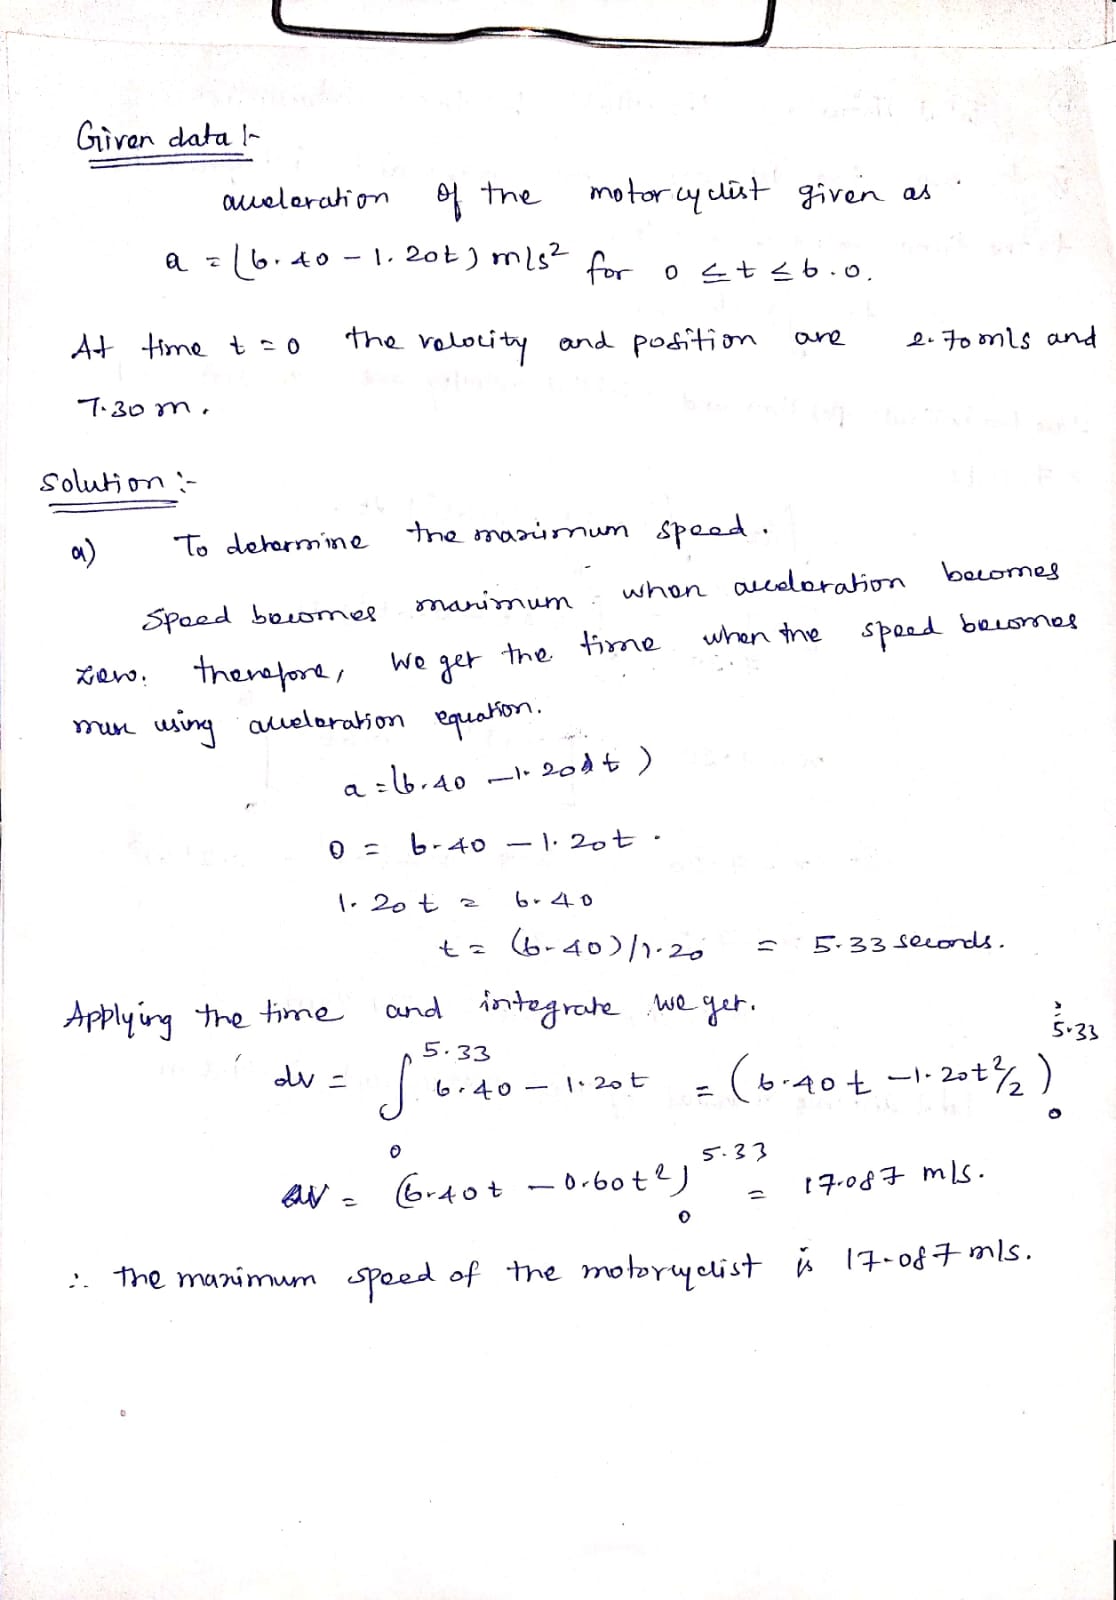 Given data :-
acceleration of the motorcyclist given as
a = (6.40 - 1.20t) m/s² for 0 ≤ t ≤ 6.0.
At time t = 0 the velocity and position are 2.70 m/s and
7.30 m.
Solution :-
a) To determine the maximum speed.
Speed becomes maximum when acceleration becomes
zero. therefore, we get the time when the speed becomes
max using acceleration equation.
a = (6.40 - 1.20 t)
0 = 6.40 - 1.20t.
1.20 t = 6.40
t = (6.40)/1.20 = 5.33 seconds.
Applying the time and integrate we get.
dv = ∫₀^5.33 6.40 - 1.20t = (6.40t - 1.20t²/2)₀^5.33
dv = (6.40t - 0.60t²)₀^5.33 = 17.087 m/s.
∴ the maximum speed of the motorcyclist is 17.087 m/s.